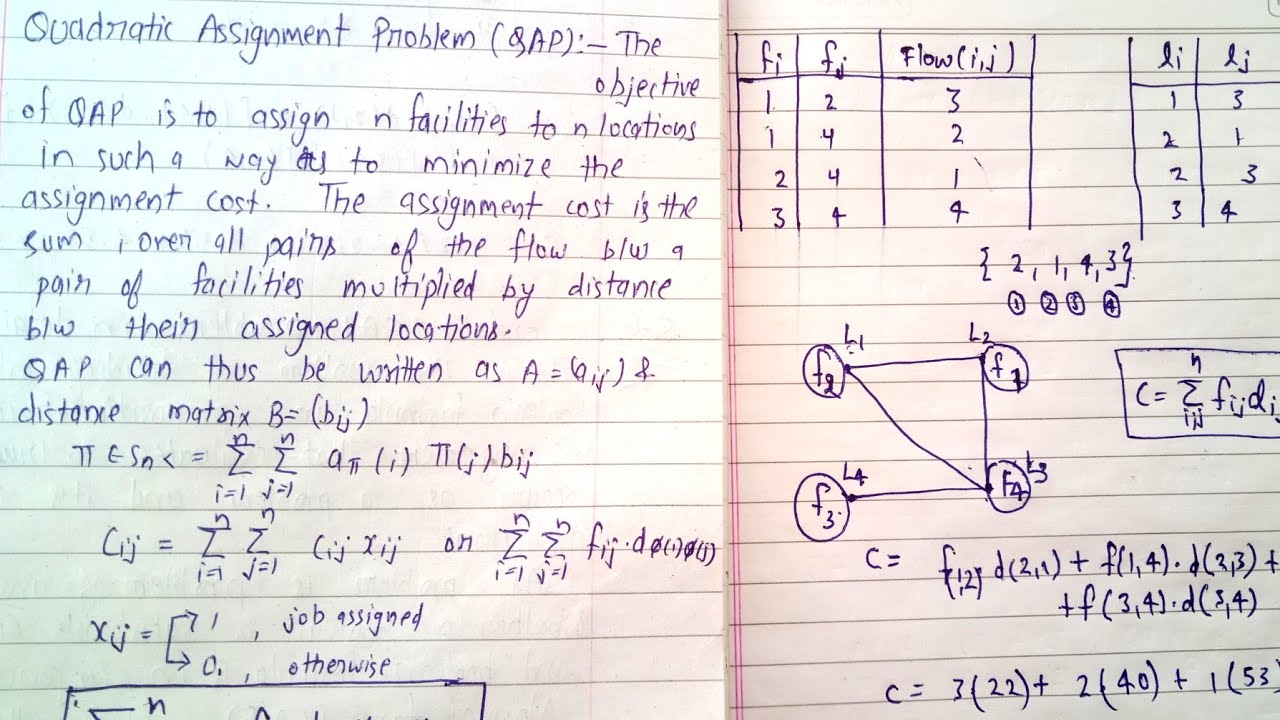 Quadratic Assignment Problem (QAP):- The
objective
of QAP is to assign n facilities to n locations
in such a way as to minimize the
assignment cost. The assignment cost is the
sum, over all pairs of the flow b/w a
pair of facilities multiplied by distance
b/w their assigned locations.
QAP can thus be written as A = (aij) &
distance matrix B = (bij)
π ∈ Sn < = Σ Σ aπ(i) π(j) bij
n n
i=1 j=1
Cij = Σ Σ cij xij or Σ Σ fij . dø(i)ø(j)
n n n n
i=1 j=1 i=1 j=1
xij = 1 , job assigned
0. , otherwise
n
fi fj Flow(i,j)
1 2 3
1 4 2
2 4 1
3 4 4
li lj
1 3
2 1
2 3
3 4
{ 2, 1, 4, 3 }
① ② ③ ④
L1 L2
f2 f1
C = Σ fij di
n
i,j
L4 L3
f3 f4
C = f(1,2) d(2,1) + f(1,4) . d(2,3) +
+ f(3,4) . d(3,4)
C = 3(22) + 2(40) + 1(53)